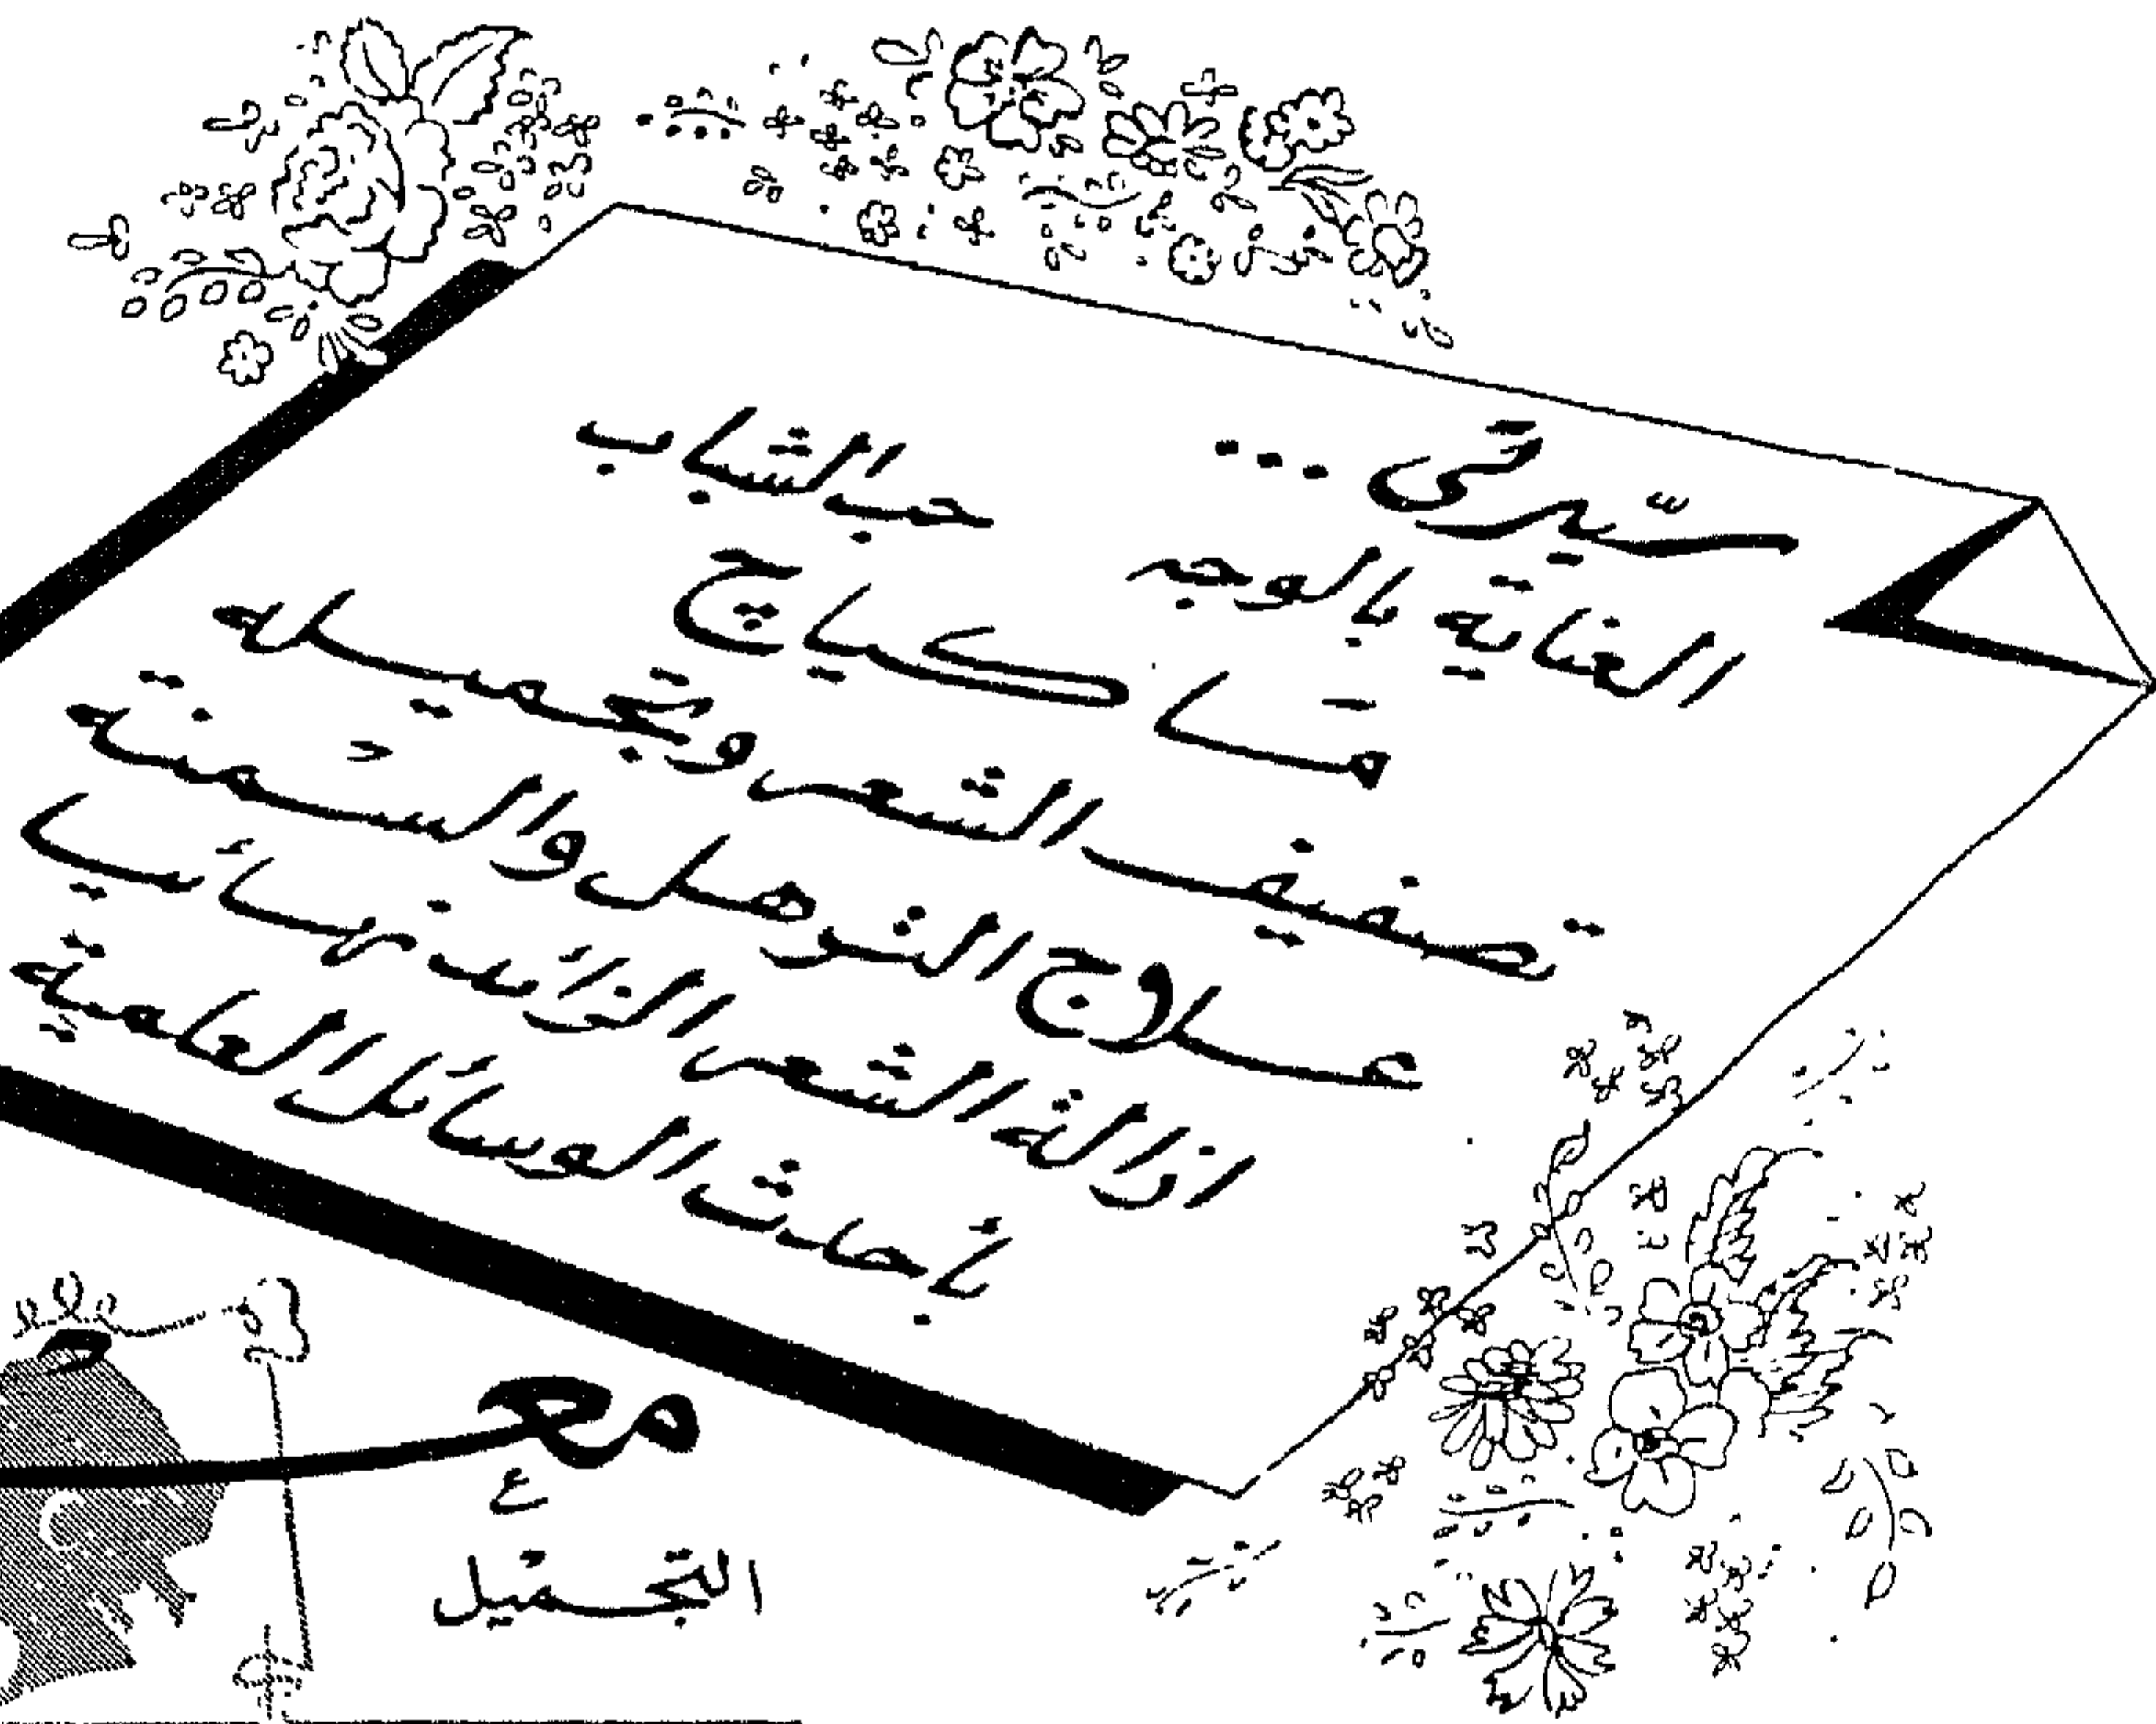 سيّدتي ...
العناية بالوجه حب الشباب
مَاكياج
تصفيف الشعر وتجميله
علاج الترهل والسّمنة
ازالة الشعر الزائد نهائيا
بأحدث الوسائل العلمية
مع
التجميل